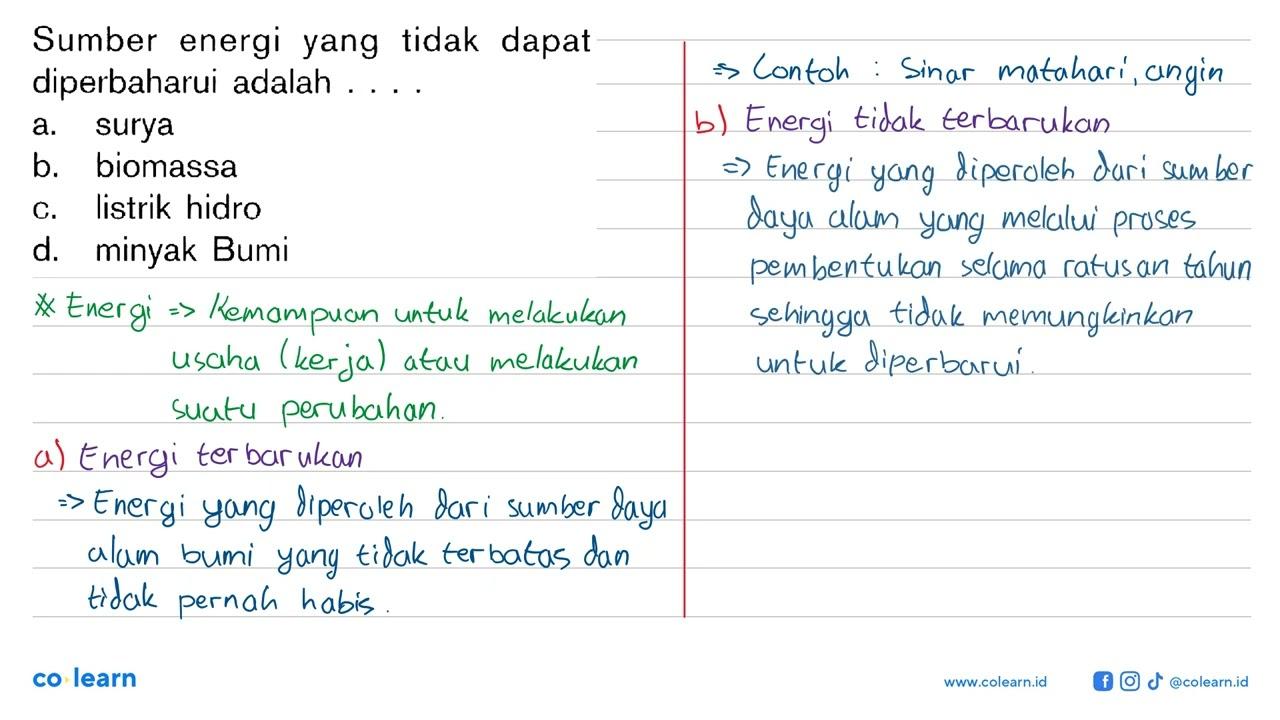 Sumber energi yang tidak dapat
diperbaharui adalah . . . .
a. surya
b. biomassa
c. listrik hidro
d. minyak Bumi
* Energi => Kemampuan untuk melakukan
usaha (kerja) atau melakukan
suatu perubahan.
a) Energi terbarukan
=> Energi yang diperoleh dari sumber daya
alam bumi yang tidak terbatas dan
tidak pernah habis.
=> Contoh : Sinar matahari, angin
b) Energi tidak terbarukan
=> Energi yang diperoleh dari sumber
daya alam yang melalui proses
pembentukan selama ratusan tahun
sehingga tidak memungkinkan
untuk diperbarui.
co learn
www.colearn.id
@colearn.id